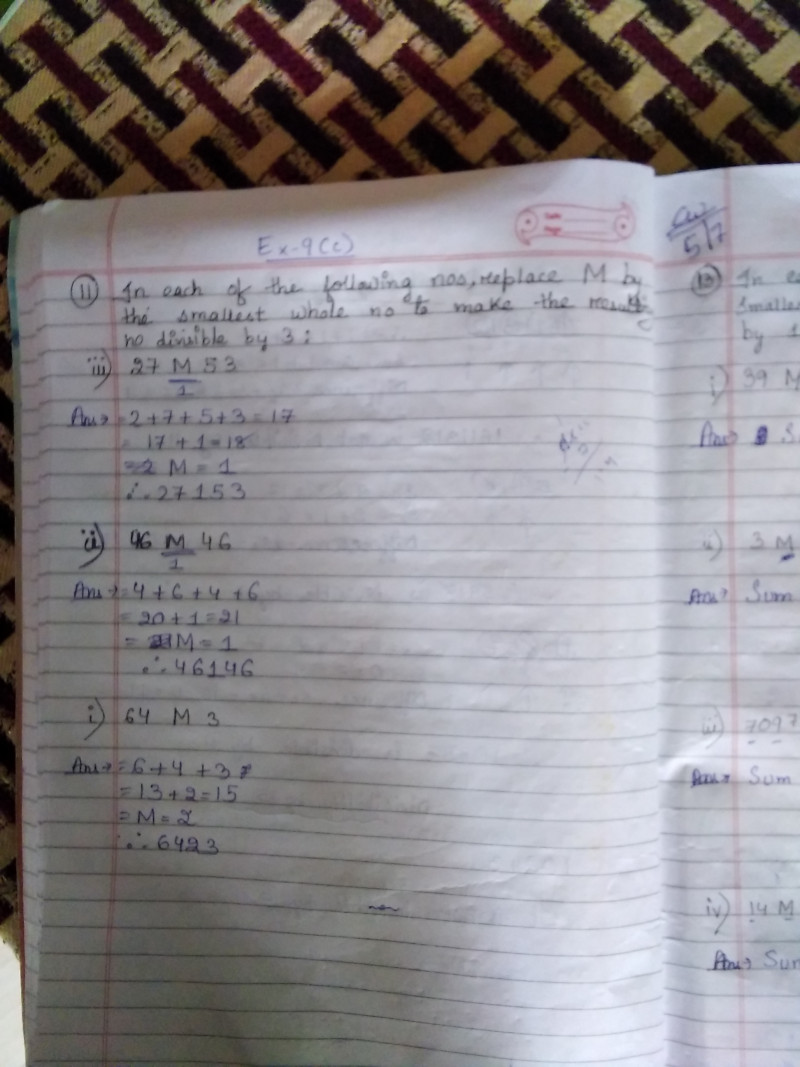 Ex-9(c)
11 In each of the following nos, replace M by
the smallest whole no to make the resulting
no divisible by 3:
iii) 27 M 53
1
Ans→ = 2+7+5+3=17
= 17+1=18
= M = 1
∴ 27153
ii) 46 M 46
1
Ans→ = 4+6+4+6
= 20+1=21
= M = 1
∴ 46146
i) 64 M 3
Ans→ = 6+4+3
= 13+2=15
= M = 2
∴ 6423
CW
5/7
13 In
smallest
by 1
i) 39 M
Ans→
ii) 3 M
Ans→ Sum
iii) 7097
Ans→ Sum
iv) 14 M
Ans→ Sum